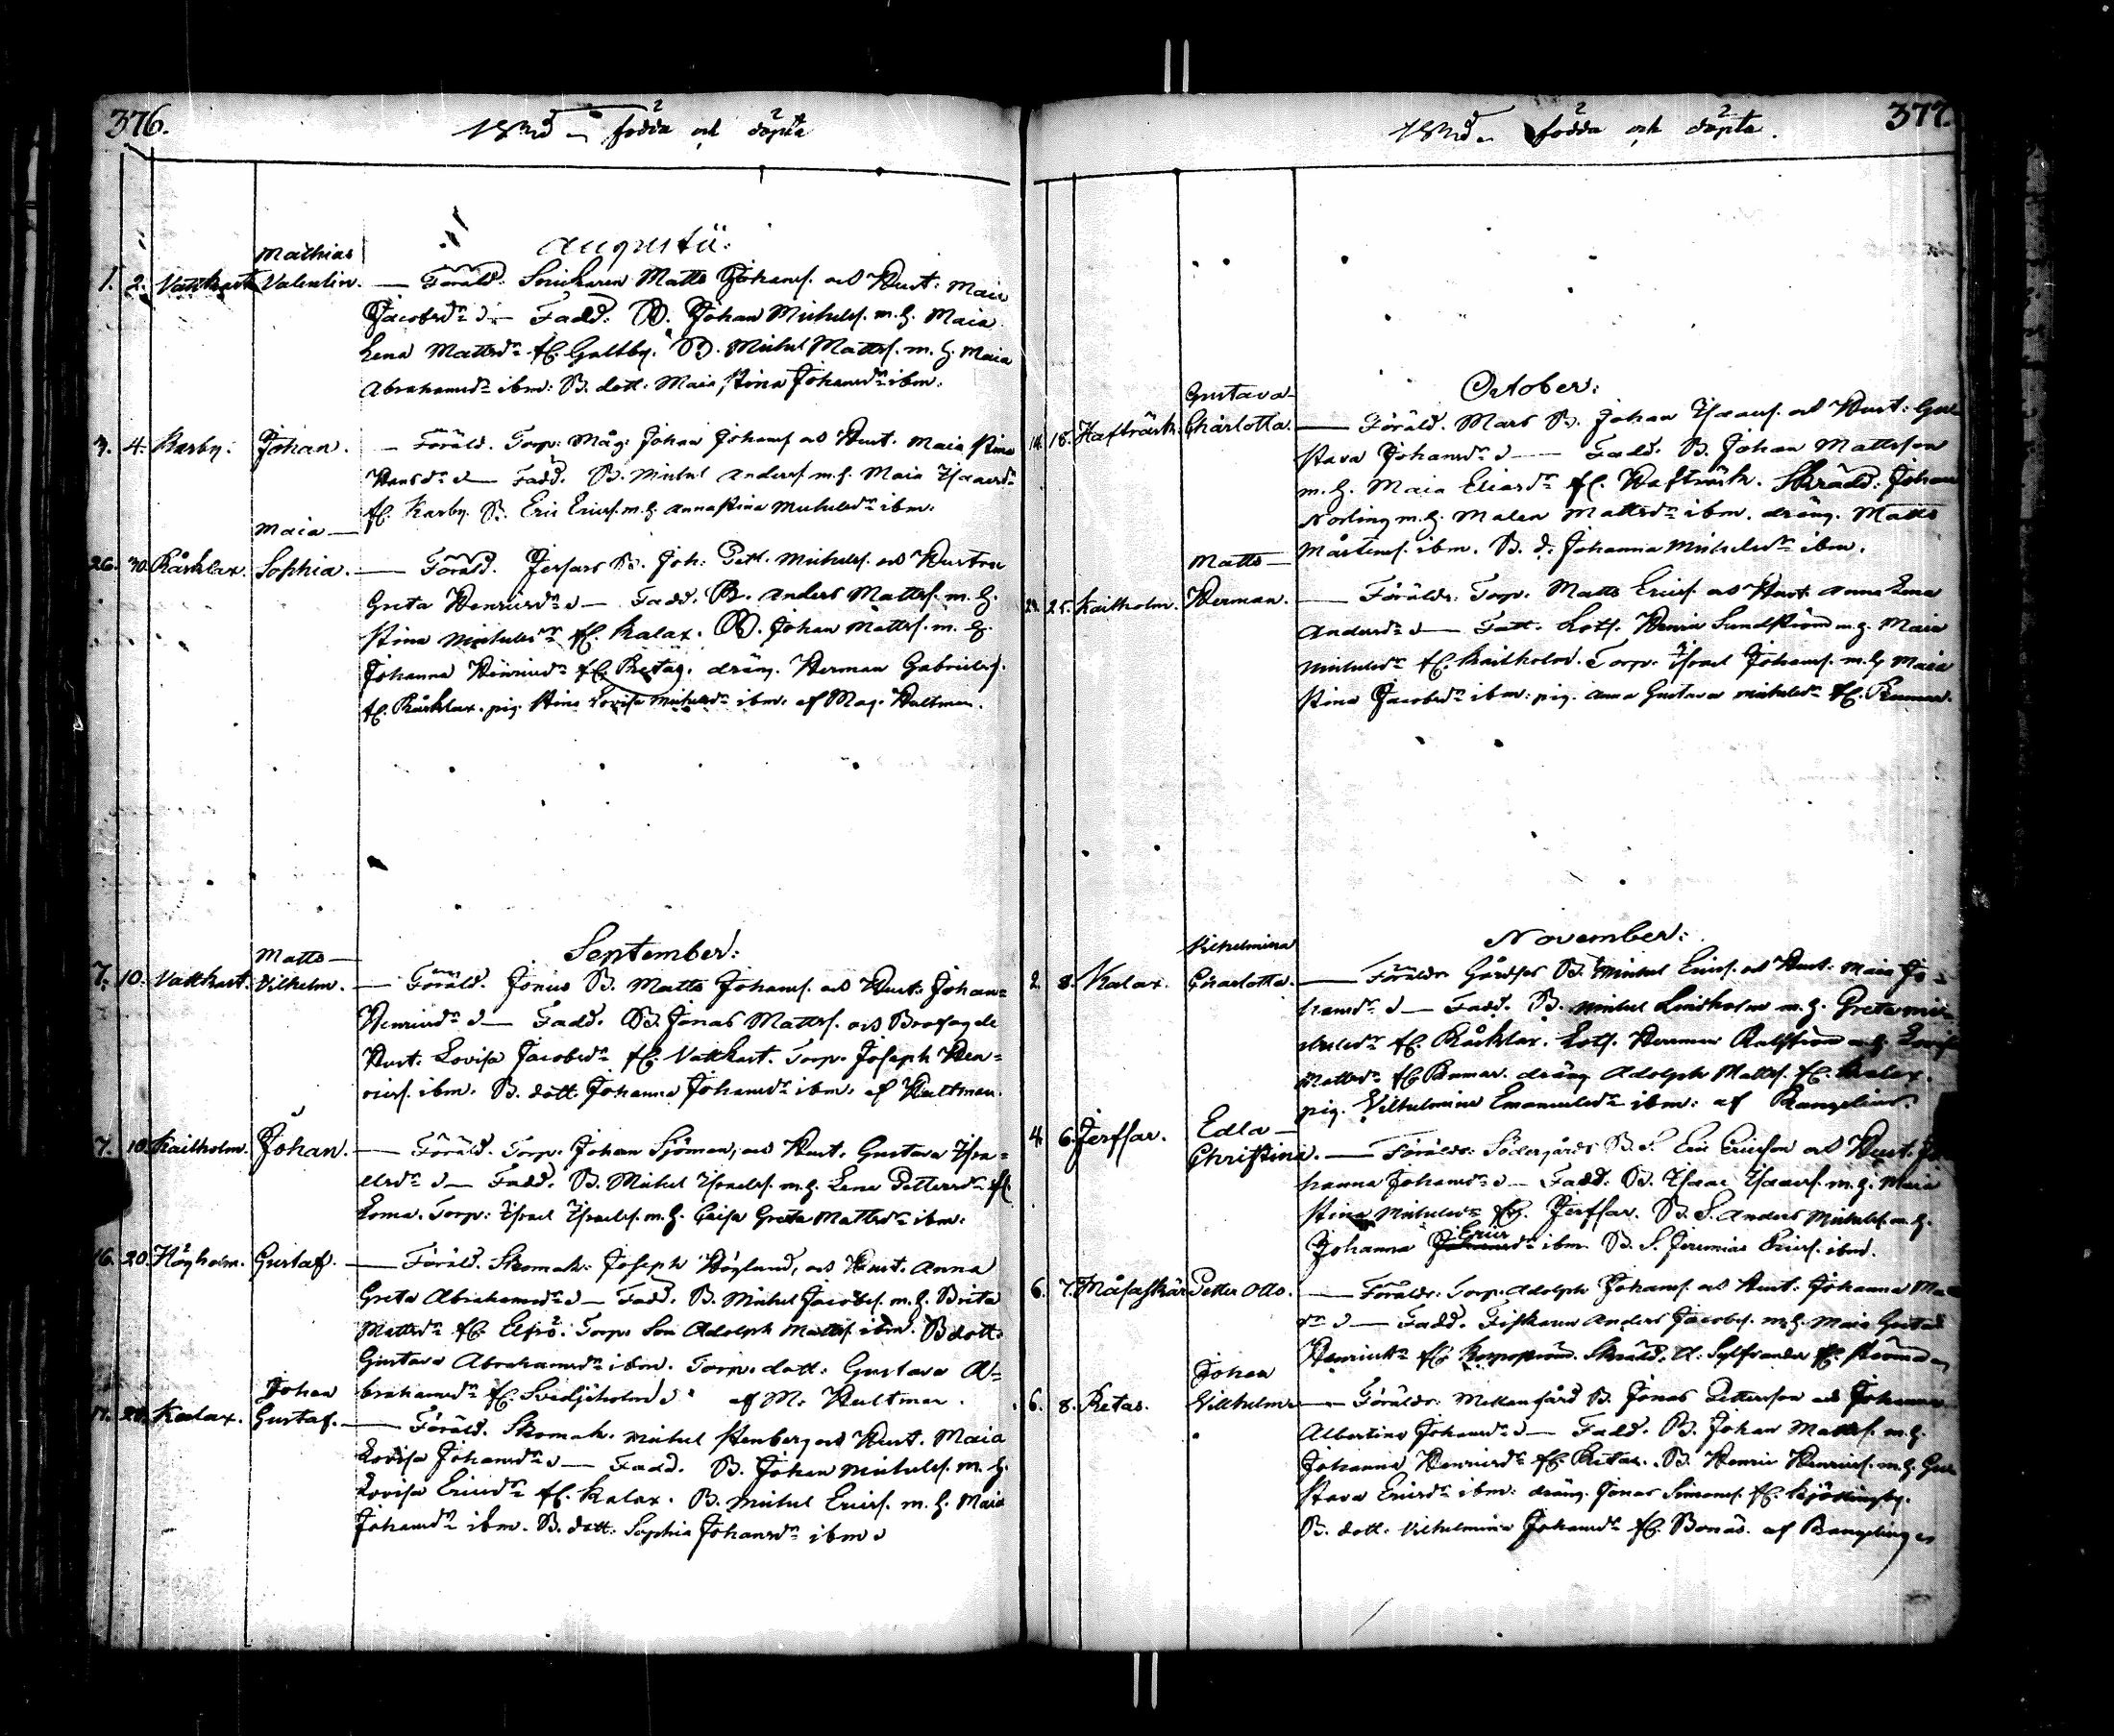 376.
födda och döpta
Augusti:
Mathias
1. 2. Vattkast Valentin. — Föräld. Matts Johanss. och Hust: Maia
Jacobsdr — Fadd: B. Johan Michelss. m.h. Maia
Lena Mattsdr fr. Galtby. B. Michel Mattss. m.h. Maia
Abrahamsdr ibm: B. dott: Maia Stina Johansdr ibm:
3. 4. Karby: Johan. — Föräld. Torp: Måg: Johan Johanss och Hust. Maia Stina
Hansdr — Fadd. B. Michel Anderss m.h. Maia Isaacsdr
fr. Karby. B. Eric Ericss. m.h. Anna Stina Michelsdr ibm:
Maia —
26. 30. Råcklax. Sophia. — Föräld. B. Joh: Pett. Michelss. och Hustru
Greta Henricsdr — Fadd. B. Anders Mattss. m.h.
Stina Michelsdr fr. Kalax. B. Johan Mattss. m.h.
Johanna Henricsdr fr. Retas. dräng. Herman Gabrielss.
fr. Råcklax. pig. Stina Lovisa Michelsdr ibm. af Mag. Hultman.
September:
Matts —
7. 10. Vattkast. Vilhelm. — Föräld. B. Matts Johanss. och Hust: Johan=
Henricsdr — Fadd. B. Jonas Mattss. och
Hust: Lovisa Jacobsdr fr. Vattkast. Torp. Joseph Hen=
ricss. ibm. B. dott. Johanna Johansdr ibm. af Hultman.
7. 10. Kailholm. Johan. — Föräld. Torp. Johan Sjöman, och Hust. Gustava Isra=
elsdr — Fadd. B. Michel Israelss. m.h. Lena Pettersdr fr.
Loma. Torp: Israel Israelss. m.h. Caisa Greta Mattsdr ibm:
16. 20. Högholm. Gustaf. — Föräld. Skomak: Joseph Höglund, och Hust. Anna
Greta Abrahamsdr — Fadd. B. Michel Jacobss. m.h. Brita
Mattsdr fr. Elfsö. Torp. Son Adolph Mattss. ibm. B dott:
Gustava Abrahamsdr ibm. Torp. dott: Gustava A=
brahamsdr fr. af M. Hultman.
Johan
17. Kalax. Gustaf. — Föräld. Skomak. Michel Stenberg och Hust. Maia
Lovisa Johansdr — Fadd. B. Johan Michelss. m.h.
Lovisa Ericsdr fr. Kalax. B. Michel Ericss. m.h. Maia
Johansdr ibm. B. dott: Sophia Johansdr ibm
377.
födda och döpta.
October:
Gustava
14. 18. Haftträsk. Charlotta. — Föräld. B. Johan Isaacss. och Hust: Gu=
stava Johansdr — Fadd. B. Johan Mattsson
m.h. Maia Eliasdr fr. Haftträsk. Skrädd: Johan
Norling m.h. Malen Mattsdr ibm. dräng. Matts
Mårtenss. ibm. B. d: Johanna Michelsdr ibm.
Matts —
25. Kailholm. Herman. — Föräldr: Torp. Matts Ericss. och Hust. Anna Lena
Andersdr — Fadd. Lots. Henric Sundström m.h. Maia
Michelsdr fr. Kailholm. Torp. Israel Johanss. m.h. Maia
Stina Jacobsdr ibm: pig. Anna Gustava Michelsdr fr.
November:
Vilhelmina
2. 8. Kalax. Charlotta. — Föräldr. B. Michel Ericss. och Hust: Maia Jo=
hansdr — Fadd. B. Michel Lindholm m.h. Greta Mi=
chelsdr fr. Råcklax. Lots. Herman m.h. Lovisa
Mattsdr fr. dräng Adolph Mattss. fr. Kalax.
pig. Vilhelmina Emanuelsdr ibm: af Bangelius.
4. 6. Jerfsar. Edla —
Christina. — Föräldr: Södergårds B. S. Eric Ericsson och Hust. Jo
hanna Johansdr — Fadd: B. Isaac Isaacss. m.h. Maia
Stina Michelsdr fr. Jerfsar. B. S. Anders Michelss. m.h.
Johanna Ericsdr ibm. B. S. Jeremias Ericss. ibm.
6. 7. Måsaskär Petter Otto. — Föräldr. Torp. Adolph Johanss. och Hust: Johanna
dr — Fadd. Fiskaren Anders Jacobss. m.h. Maia Greta
Henricsdr fr. Korpoström. Skrädd. fr. Strömma
Johan
6. 8. Retas. Vilhelm — Föräldr: Mellangård B. Jonas Pettersson och Johanna
Albertina Johansdr — Fadd. B. Johan Mattss. m.h.
Johanna Henricsdr fr. Retas. B. Henric Henricss. m.h. Gu
stava Ericsdr ibm: dräng. Jonas Simonss. fr.
B. dott: Vilhelmina Johansdr fr. Bonäs. af Bangelius